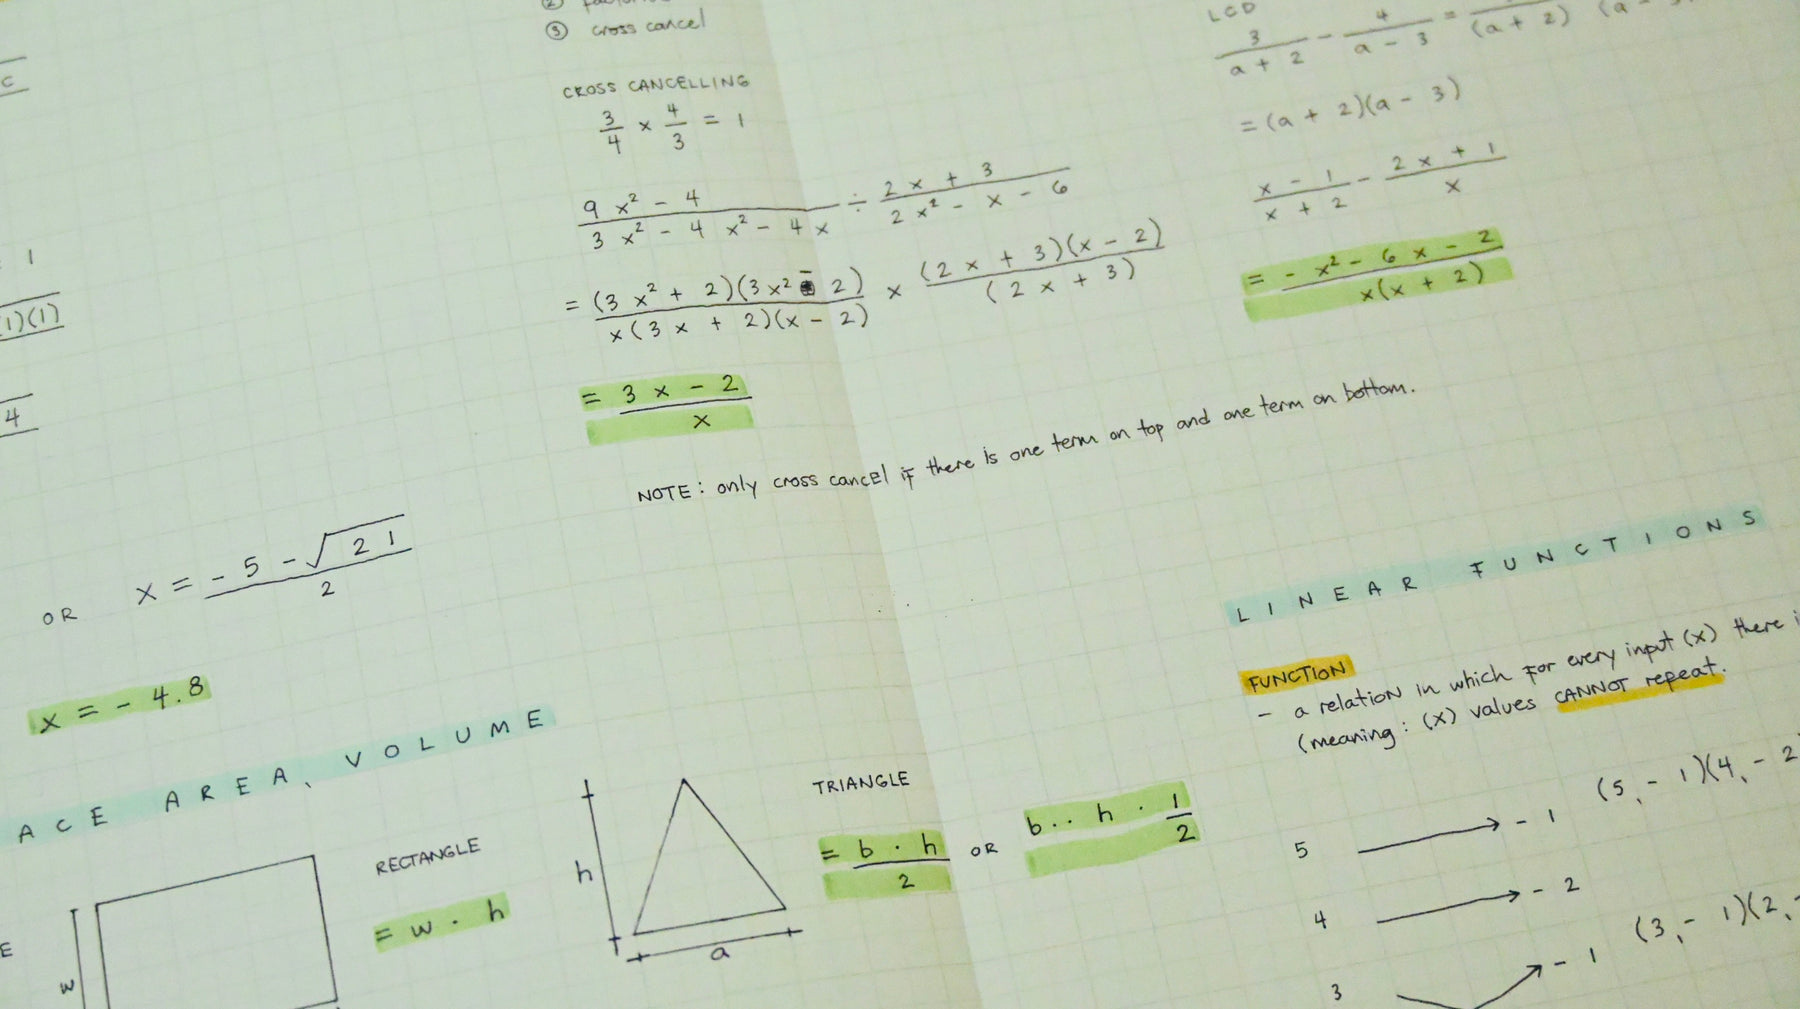 c
1
1)(1)
4
OR x = - 5 - √21 / 2
x = - 4.8
ACE AREA, VOLUME
E
w
RECTANGLE
= w · h
② 
③ cross cancel
CROSS CANCELLING
3/4 × 4/3 = 1
9 x² - 4 / 3 x² - 4 x² - 4 x ÷ 2 x + 3 / 2 x² - x - 6
= (3 x² + 2)(3 x² - 2) / x(3 x + 2)(x - 2) × (2 x + 3)(x - 2) / (2 x + 3)
= 3 x - 2 / x
NOTE : only cross cancel if there is one term on top and one term on bottom.
h
a
TRIANGLE
= b · h / 2 OR b·· h · 1/2
LCD
3 / a + 2 - 4 / a - 3 = (a + 2) (a -
= (a + 2)(a - 3)
x - 1 / x + 2 - 2 x + 1 / x
= - x² - 6 x - 2 / x(x + 2)
LINEAR FUNCTIONS
FUNCTION
- a relation in which for every input (x) there i
(meaning : (x) values CANNOT repeat.
5 → - 1 (5, - 1)(4, - 2
4 → - 2
3 → - 1 (3, - 1)(2, -